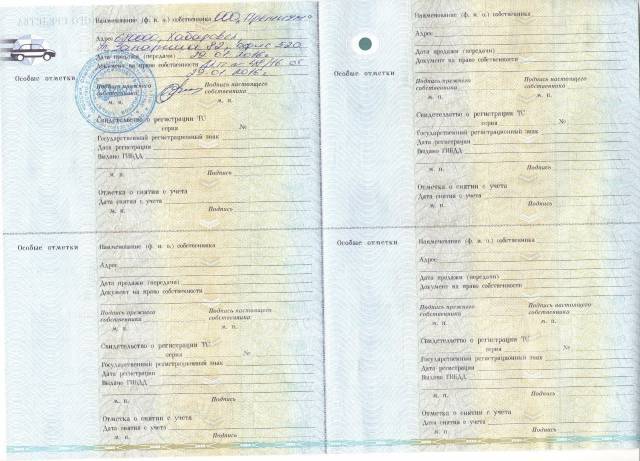 Особые отметки
Наименование (ф. и. о.) собственника ООО „Премиум"
Адрес г. Хабаровск
82, офис 320
Дата продажи (передачи) 29.01.2016г
Документ на право собственности
29.01.2016г
Подпись прежнего собственника
Подпись настоящего собственника
м. п.
м. п.
Свидетельство о регистрации ТС
серия №
Государственный регистрационный знак
Дата регистрации
Выдано ГИБДД
м. п. Подпись
Отметка о снятии с учета
Дата снятия с учета
м. п. Подпись
Особые отметки
Наименование (ф. и. о.) собственника
Адрес
Дата продажи (передачи)
Документ на право собственности
Подпись прежнего собственника
Подпись настоящего собственника
м. п.
м. п.
Свидетельство о регистрации ТС
серия №
Государственный регистрационный знак
Дата регистрации
Выдано ГИБДД
м. п. Подпись
Отметка о снятии с учета
Дата снятия с учета
м. п. Подпись
Особые отметки
Наименование (ф. и. о.) собственника
Адрес
Дата продажи (передачи)
Документ на право собственности
Подпись прежнего собственника
Подпись настоящего собственника
м. п.
м. п.
Свидетельство о регистрации ТС
серия №
Государственный регистрационный знак
Дата регистрации
Выдано ГИБДД
м. п. Подпись
Отметка о снятии с учета
Дата снятия с учета
м. п. Подпись
Особые отметки
Наименование (ф. и. о.) собственника
Адрес
Дата продажи (передачи)
Документ на право собственности
Подпись прежнего собственника
Подпись настоящего собственника
м. п.
м. п.
Свидетельство о регистрации ТС
серия №
Государственный регистрационный знак
Дата регистрации
Выдано ГИБДД
м. п. Подпись
Отметка о снятии с учета
Дата снятия с учета
м. п. Подпись